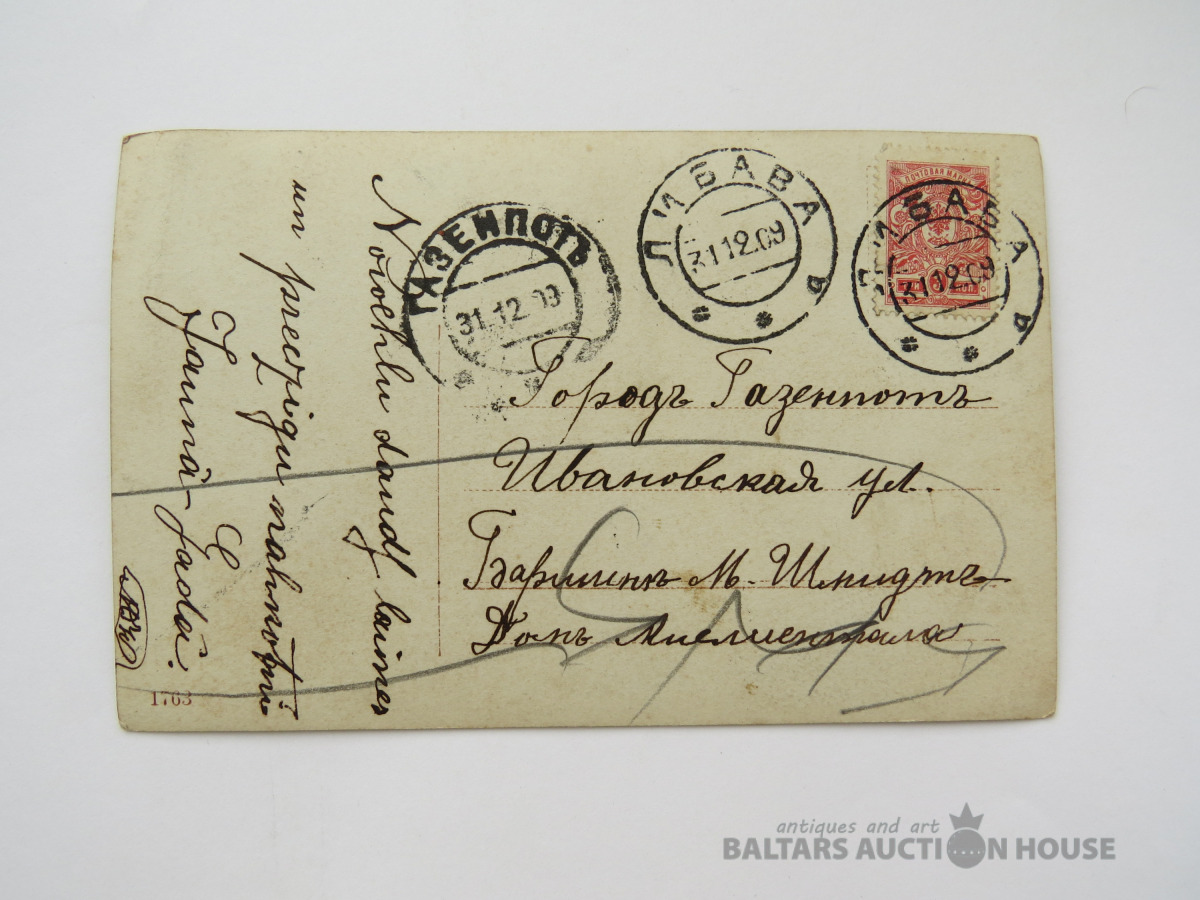 ПОЧТОВАЯ МАРКА
ЛИБАВА
31 12.09
ъ
ЛИБАВА
31 12.09
ъ
ГАЗЕНПОТЪ
31.12.09
Городъ Газенпотъ
Ивановская ул.
Барышнѣ М. Шмидтъ
Домъ
Novehlu daudſ laimes
un preezigu nahkotni
Jaunā-gadā!
E
1763
antiques and art
BALTARS AUCTION HOUSE